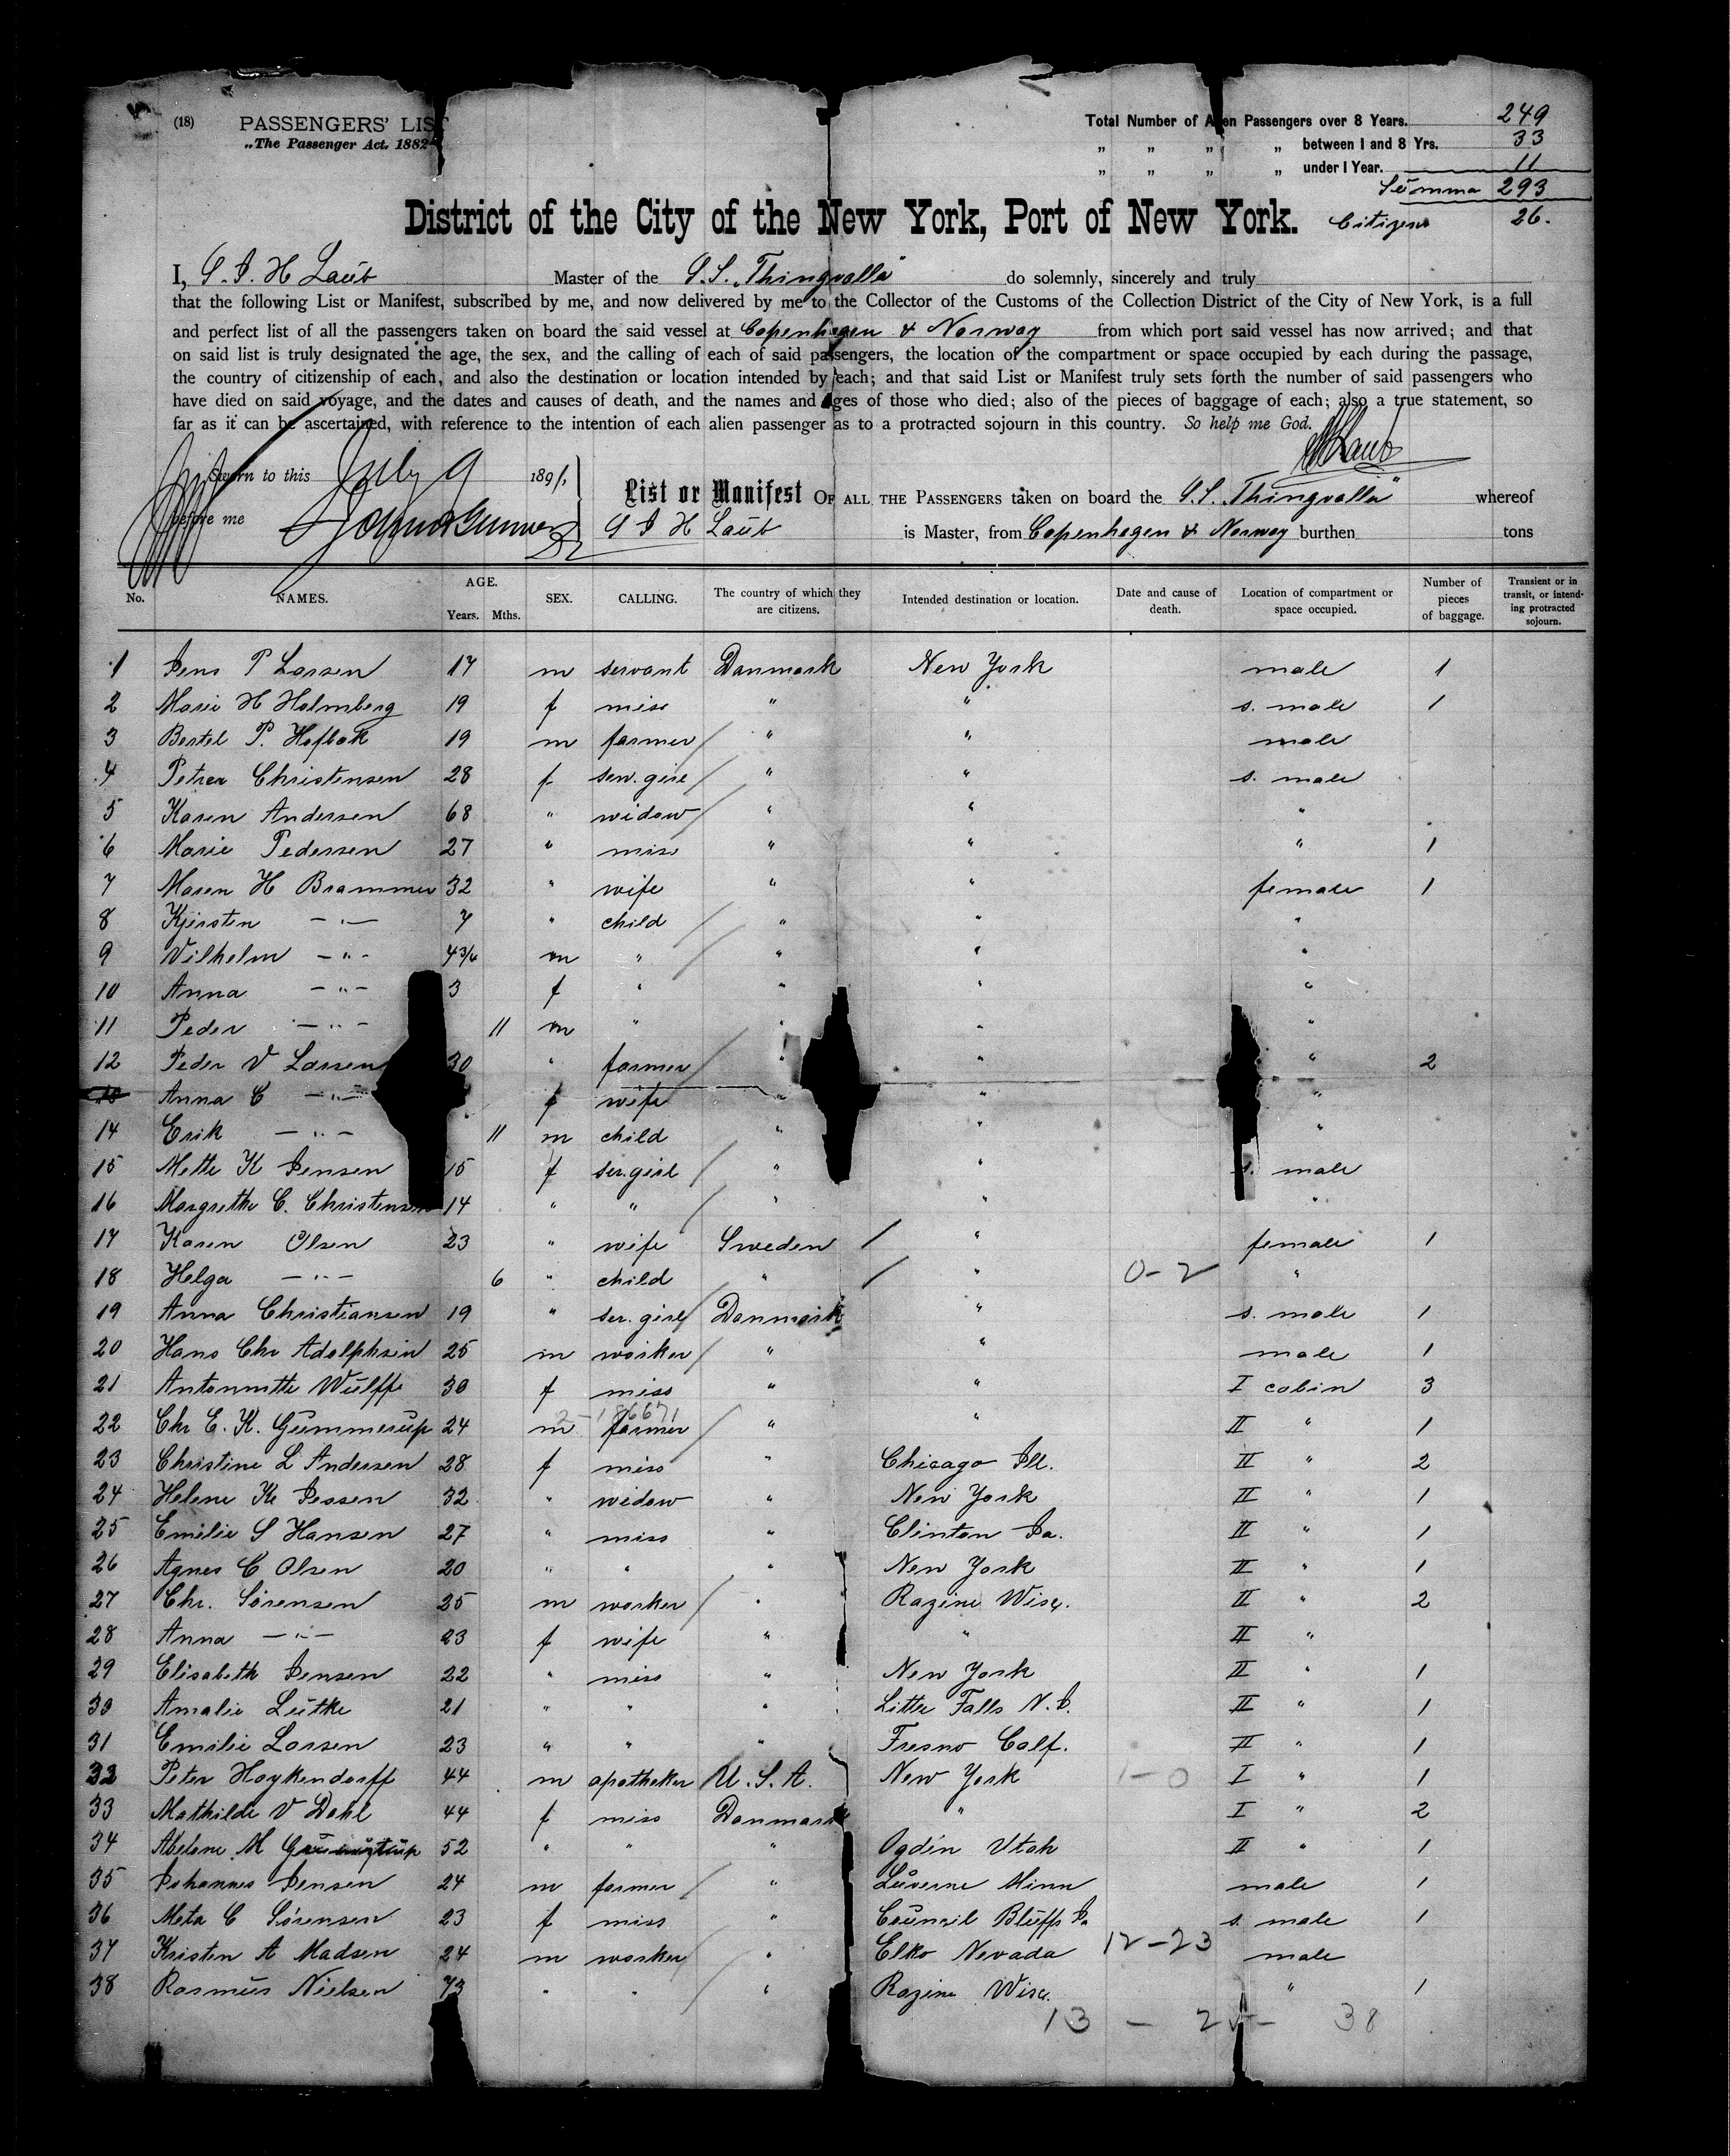 (18) PASSENGERS' LIST
„The Passenger Act. 1882
Total Number of Alien Passengers over 8 Years. 249
„ „ „ „ between 1 and 8 Yrs. 33
„ „ „ „ under 1 Year. 11
Summa 293
Citizens 26.
District of the City of the New York, Port of New York.
I, S. J. H Laub Master of the S.S. „Thingvalla" do solemnly, sincerely and truly
that the following List or Manifest, subscribed by me, and now delivered by me to the Collector of the Customs of the Collection District of the City of New York, is a full
and perfect list of all the passengers taken on board the said vessel at Copenhagen & Norway from which port said vessel has now arrived; and that
on said list is truly designated the age, the sex, and the calling of each of said passengers, the location of the compartment or space occupied by each during the passage,
the country of citizenship of each, and also the destination or location intended by each; and that said List or Manifest truly sets forth the number of said passengers who
have died on said voyage, and the dates and causes of death, and the names and ages of those who died; also of the pieces of baggage of each; also a true statement, so
far as it can be ascertained, with reference to the intention of each alien passenger as to a protracted sojourn in this country. So help me God.
Laub
Sworn to this July 9 1891,
before me
List or Manifest OF ALL THE PASSENGERS taken on board the S.S. „Thingvalla" whereof
S J H Laub is Master, from Copenhagen & Norway burthen tons
No. NAMES. AGE. Years. Mths. SEX. CALLING. The country of which they are citizens. Intended destination or location. Date and cause of death. Location of compartment or space occupied. Number of pieces of baggage. Transient or in transit, or intending protracted sojourn.
1 Jens P Larsen 17 m servant Danmark New York male 1
2 Marie H Holmberg 19 f miss " " s. male 1
3 Bertel P. Hofbak 19 m farmer " " male
4 Petrea Christensen 28 f serv. girl " " s. male
5 Karen Andersen 68 " widow " " "
6 Marie Pedersen 27 " miss " " " 1
7 Maren H Brammer 32 " wife " " female 1
8 Kjirsten — " — 7 " child " " "
9 Vilhelm — " — 4 3/4 m " " " "
10 Anna — " — 3 f " " " "
11 Peder — " — 11 m " " " "
12 Peder V Larsen 30 " farmer " " " 2
Anna C — " — f wife " " "
14 Erik — " — 11 m child " " "
15 Mette K Jensen 15 f ser. girl " " s. male
16 Margrethe C. Christensen 14 " " " " "
17 Karen Olsen 23 " wife Sweden " female 1
18 Helga — " — 6 " child " " 0-2 "
19 Anna Christiansen 19 " ser. girl Danmark " s. male 1
20 Hans Chr Adolphsen 25 m worker " " male 1
21 Antonnette Wulffe 30 f miss " " I cabin 3
2-186671
22 Chr E. K. Gummerup 24 m farmer " " II " 1
23 Christine L Andersen 28 f miss " Chicago Ill. II " 2
24 Helene K Jessen 32 " widow " New York II " 1
25 Emilie S Hansen 27 " miss " Clinton Ja. II " 1
26 Agnes C Olsen 20 " " " New York II " 1
27 Chr. Sörensen 25 m worker " Razine Wisc. II " 2
28 Anna — " — 23 f wife " " II "
29 Elisabeth Jensen 22 " miss " New York II " 1
30 Amalie Lütke 21 " " " Little Falls N. J. II " 1
31 Emilie Larsen 23 " " " Fresno Calf. II " 1
32 Peter Hoykendorff 44 m apotheker U.S.A. New York 1-0 I " 1
33 Mathilde V Dahl 44 f miss Danmark " I " 2
34 Abelone M 52 " " " Ogden Utah II " 1
35 Johannes Jensen 24 m farmer " Luverne Minn male 1
36 Meta C Sörensen 23 f miss " Council Bluffs Ja s. male 1
37 Kristen A Madsen 24 m worker " Elko Nevada 12-23 male
38 Rasmus Nielsen 73 " " " Razine Wisc. " 1
13 — 2 — 38